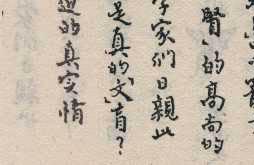 賢」的高尚的
家們日親此
是真的「文」盲？
的真实情